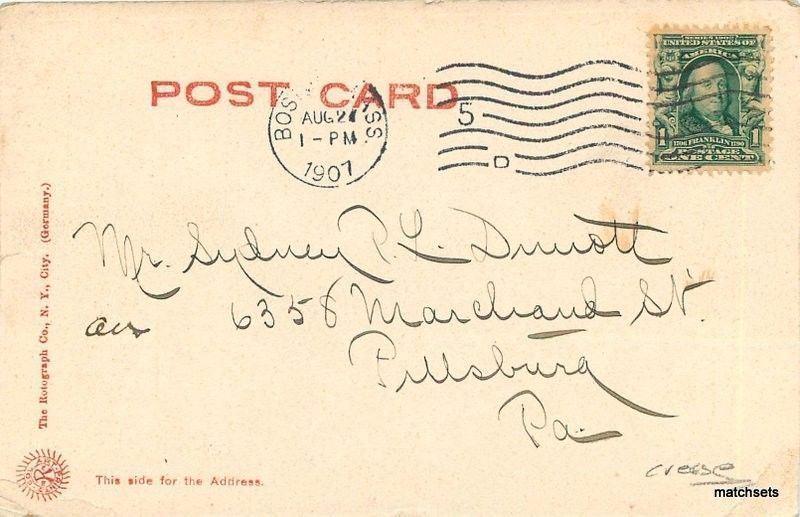 POST CARD
BOS SS
AUG 27
1-PM
1907
5
D
SERIES 1902
UNITED STATES OF
AMERICA
1706 FRANKLIN 1790
1 POSTAGE 1
ONE CENT
Mr. Sydney P. L.
6358 Marchand St.
Pittsburg
Pa.
The Rotograph Co., N. Y., City. (Germany.)
This side for the Address.
crease
matchsets